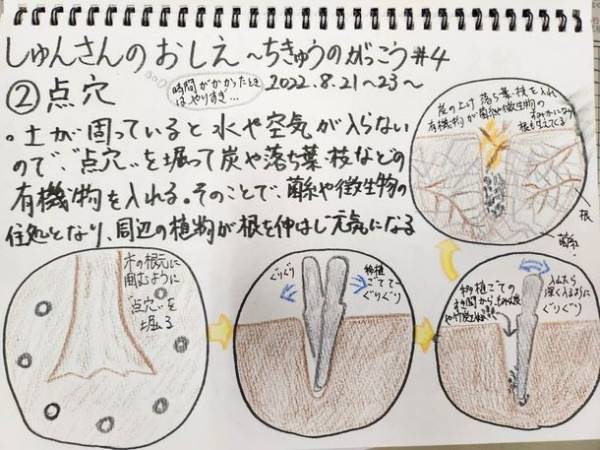 しゅんさんのおしえ～ちきゅうのがっこう#4
②点穴
時間がかかったときはやりすぎ…
2022.8.21～23～
・土が固っていると水や空気が入らない
ので、“点穴”を掘って炭や落ち葉・枝などの
有機物を入れる。そのことで、菌糸や微生物の
住処となり、周辺の植物が根を伸ばし元気になる
炭の上に落ち葉・枝を入れ
有機物が菌糸や微生物の
根
菌糸
木の根元に
囲むように
“点穴”を
掘る
ぐりぐり
移植
ごてで
ぐりぐり
移植ごての
すき間から
入れたら
深く入るように
ぐりぐり